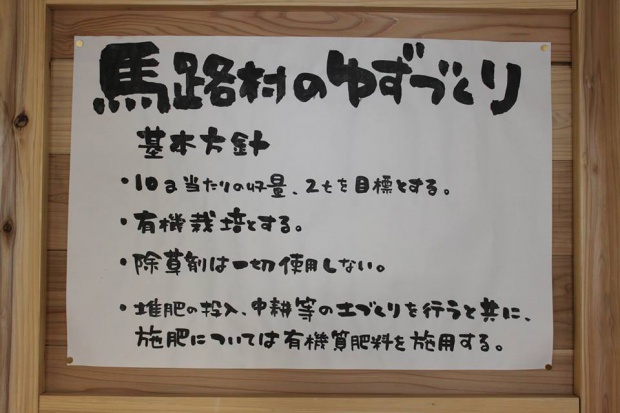 馬路村のゆずづくり
基本方針
・10a当たりの収量、2tを目標とする。
・有機栽培とする。
・除草剤は一切使用しない。
・堆肥の投入、中耕等の土づくりを行うと共に、
施肥については有機質肥料を施用する。